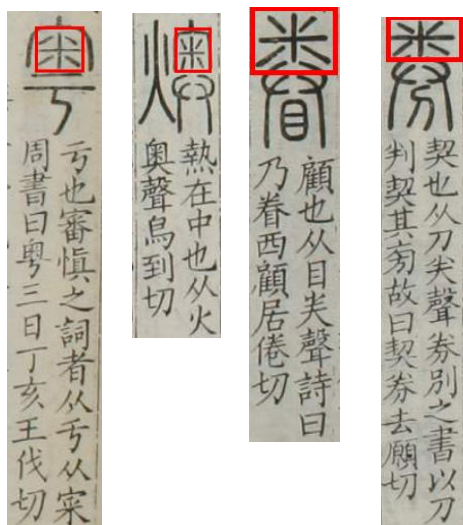 粵
亏也審愼之詞者从亏从宷
周書曰粵三日丁亥王伐切
燠
熱在中也从火
奧聲烏到切
眷
顧也从目𠔉聲詩曰
乃眷西顧居倦切
券
契也从刀𠔉聲券別之書以刀
判契其㫄故曰契券去願切